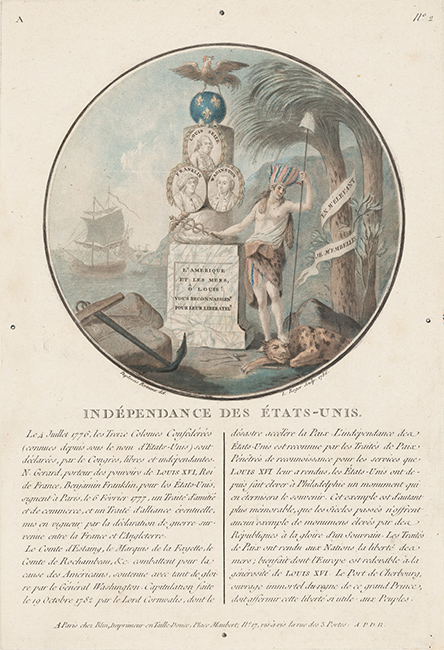 A
N.º 2
LOUIS SEIZE
FRANKLIN
WASHINGTON
EN M'ELEVANT
JE M'EMBELLIS
L'AMERIQUE
ET LES MERS,
Ô LOUIS!
VOUS RECONNAISSENT
POUR LEUR LIBERATEUR
L. Roger Sculp.
INDÉPENDANCE DES ÉTATS-UNIS.
Le 4 Juillet 1776, les Treize Colonies Confédérées
(connues depuis sous le nom d'États-Unis) sont
déclarées, par le Congrès, libres et indépendantes.
N. Gerard, porteur des pouvoirs de LOUIS XVI, Roi
de France, Benjamin Franklin, pour les États-Unis,
signent à Paris, le 6 Février 1777, un Traité d'amitié
et de commerce, et un Traité d'alliance éventuelle,
mis en vigueur par la déclaration de guerre sur-
venue entre la France et l'Angleterre.
Le Comte d'Estaing, le Marquis de la Fayette, le
Comte de Rochambeau, &c. combattent pour la
cause des Américains, soutenue avec tant de gloi-
re par le Général Washington. Capitulation faite
le 19 Octobre 1782 par le Lord Cornwalis, dont le
désastre accélère la Paix. L'indépendance des
États-Unis est reconnue par les Traités de Paix.
Pénétrés de reconnoissance pour les services que
LOUIS XVI leur a rendus, les États-Unis ont de-
puis fait élever à Philadelphie un monument qui
en éternisera le souvenir. Cet exemple est d'autant
plus mémorable, que les Siècles passés n'offrent
aucun exemple de monumens élevés par des
Républiques à la gloire d'un Souverain. Les Traités
de Paix ont rendu aux Nations la liberté des
mers; bienfait dont l'Europe est redevable à la
générosité de LOUIS XVI. Le Port de Cherbourg,
ouvrage immortel du regne de ce grand Prince,
doit affermir cette liberté si utile aux Peuples.
A Paris chez Blin, Imprimeur en Taille-Douce, Place Maubert, N.º 17, vis-à-vis la rue des 3 Portes. A. P. D. R.